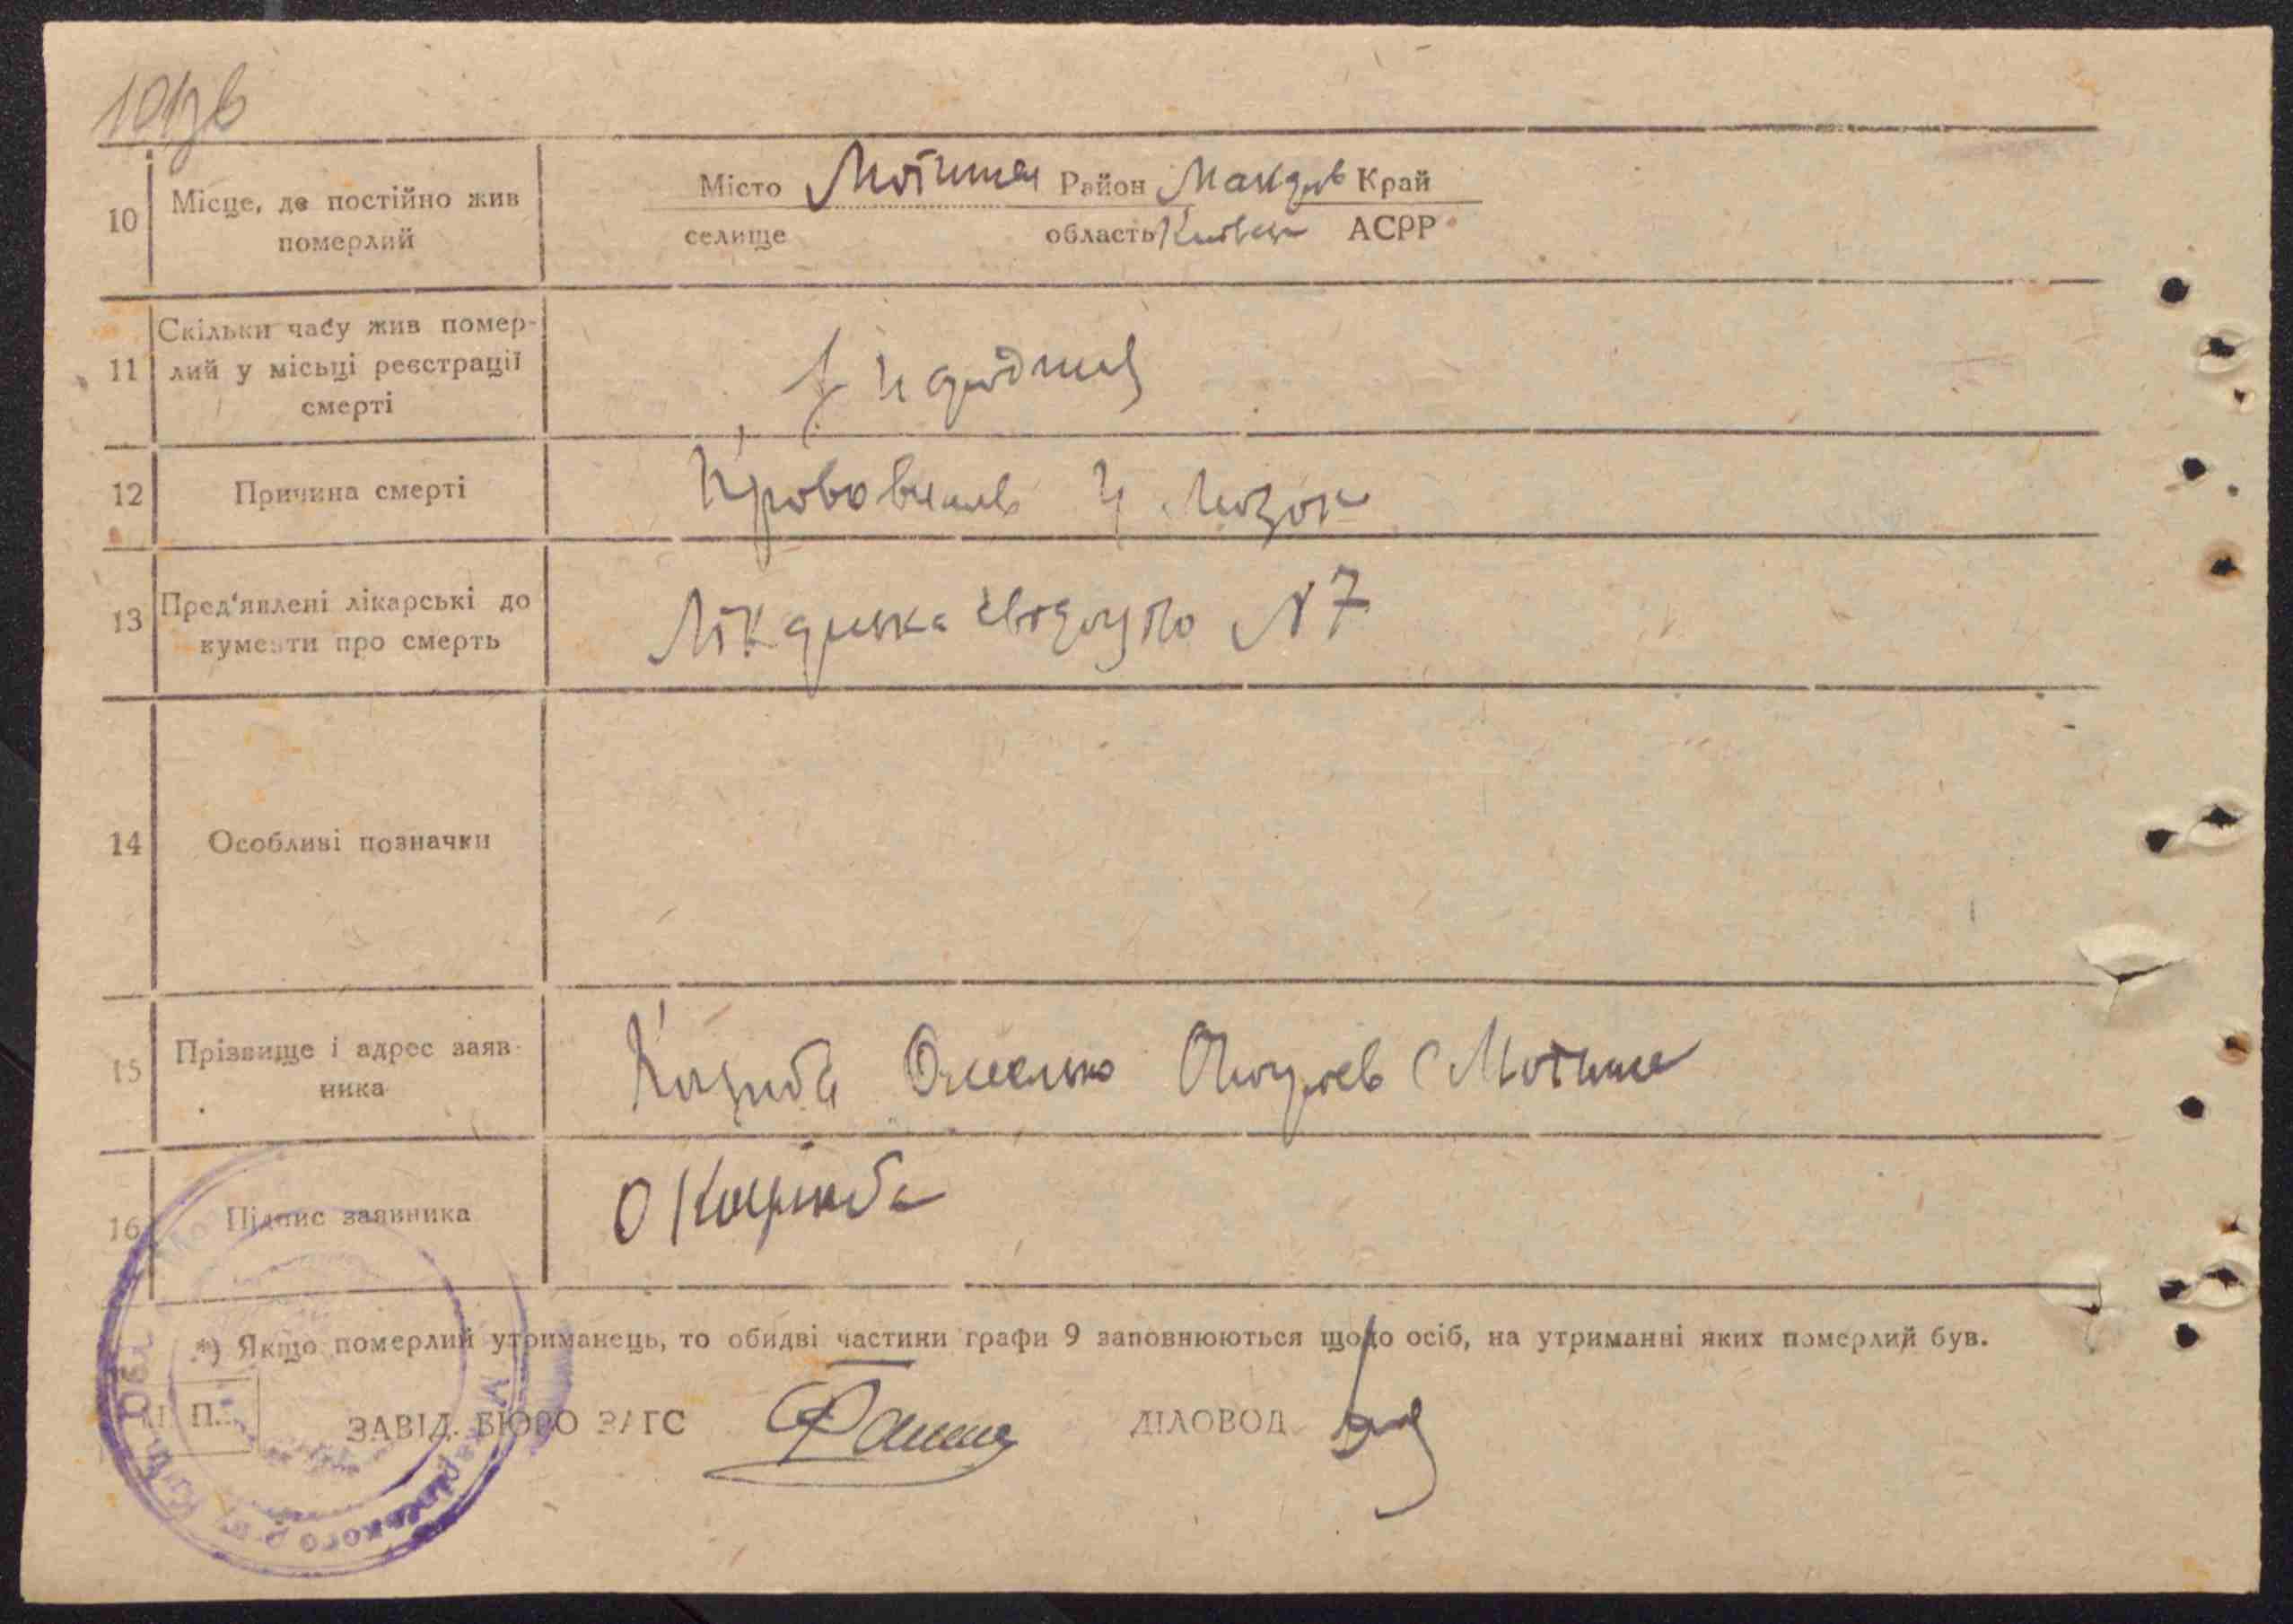 101зв
10 Місце, де постійно жив померлий
Місто Мотижин Район Макарів Край
селище область Київськ АСРР
11 Скільки часу жив помер-
лий у місьці реєстрації
смерті
З народження
12 Причина смерті
Крововилив у мозок
13 Пред'явлені лікарські до
кументи про смерть
Лікарська свідоцтво N 7
14 Особливі позначки
15 Прізвище і адрес заяв-
ника
Омелько с Мотижин
16 Підпис заявника
О
*) Якщо померлий утриманець, то обидві частини графи 9 заповнюються щодо осіб, на утриманні яких померлий був.
М. П.
ЗАВІД. БЮРО ЗАГС ДІЛОВОД